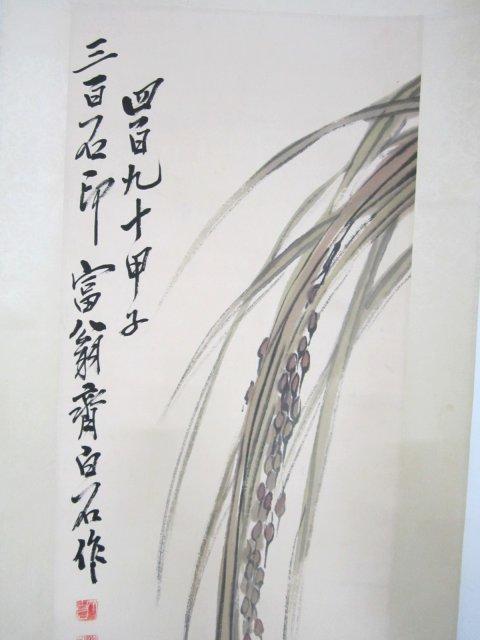 四百九十甲子
三百石印富翁齊白石作